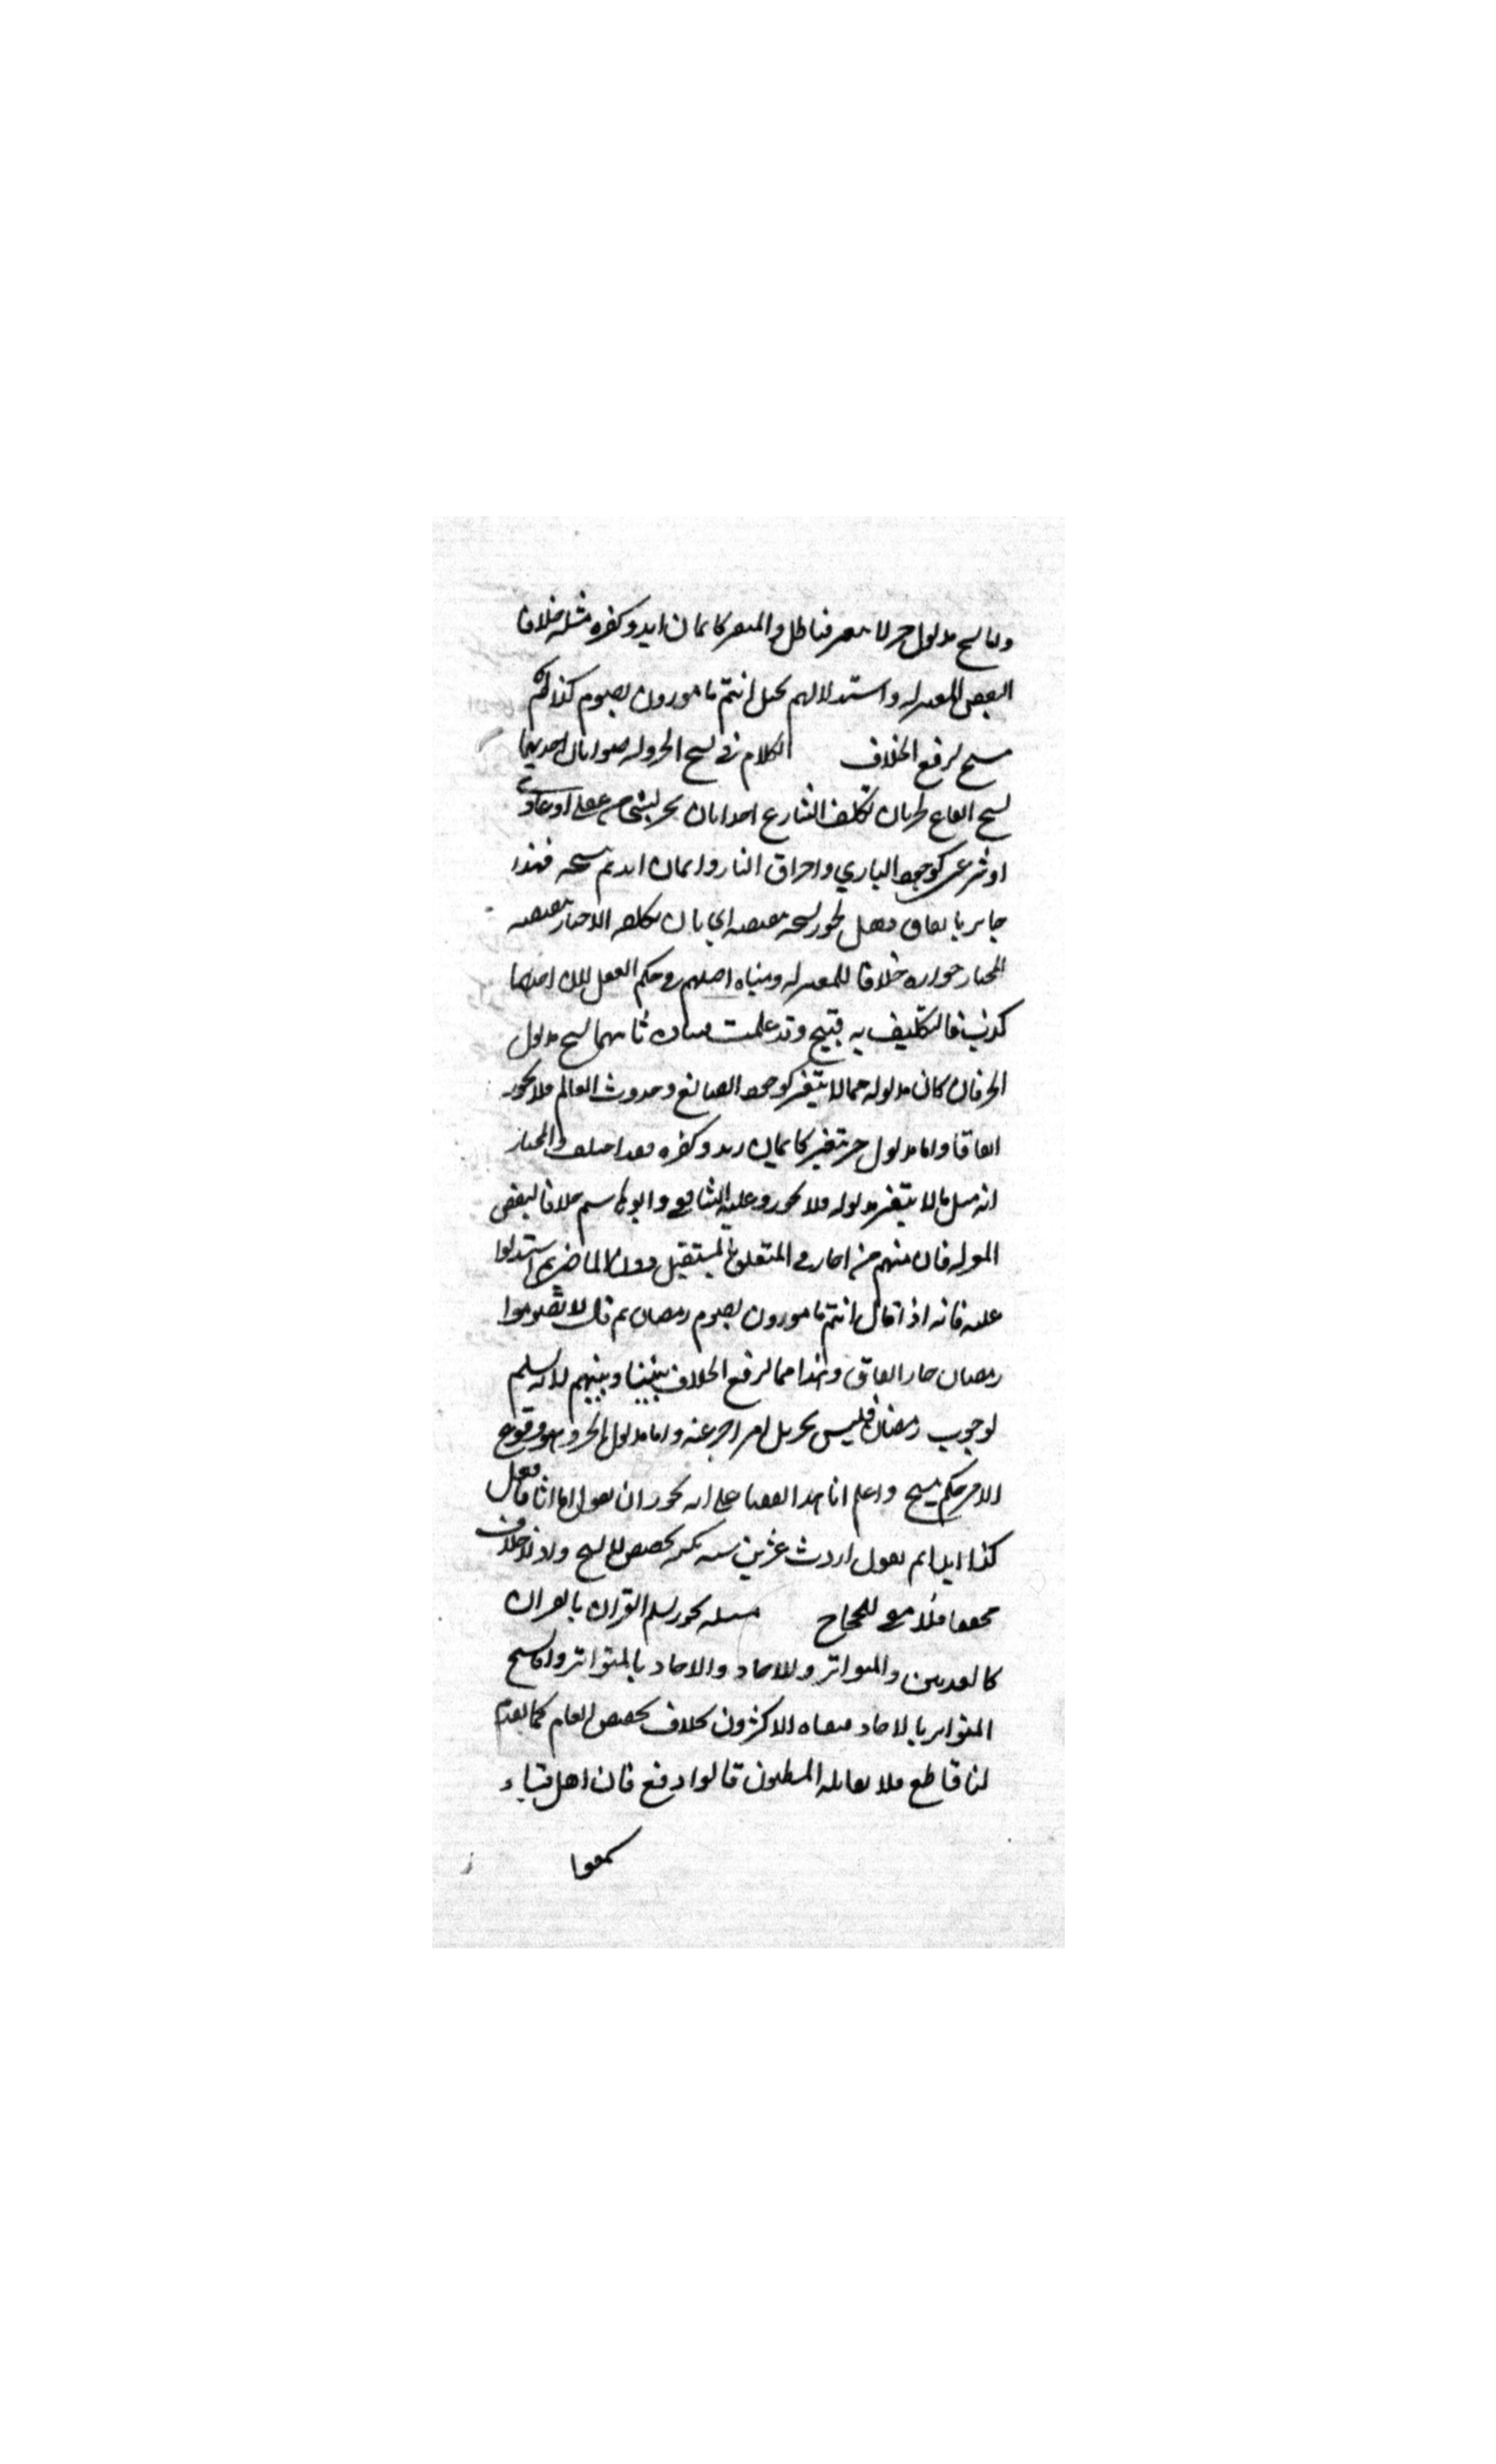 واما نسخ مدلول خبر لا يتغير فباطل والمتغير كايمان زيد وكفره مثله خلافا
لبعض المعتزله واستدلالهم بمثل انتم مامورون بصوم كذا ثم
ينسخ لرفع الخلاف الكلام في نسخ الخبر وله صورتان احديهما
نسخ ايقاع الخبر بان تكلف الشارع احدا بان يخبر بشي عقلي او عادي
او شرعي كوجود الباري واحراق النار وايمان زيد ثم ينسخه فهذا
جايز باتفاق وهل يجوز نسخه بنقيضه اي بان يكلفه الاخبار بنقيضه
المختار جوازه خلافا للمعتزله ومبناه اصلهم في حكم العقل لان احدهما
كذب فالتكليف به قبيح وقد علمت فساده ثانيهما نسخ مدلول
الخبر فان كان مدلوله مما لا يتغير كوجود الصانع وحدوث العالم فلا يجوز
اتفاقا واما مدلول خبر يتغير كايمان زيد وكفره فقد اختلف والمختار
انه مثل ما لا يتغير مدلوله فلا يجوز وعليه الشافعي وابو هاشم خلافا لبعض
المعتزله فان منهم من اجاز في المتعلق بالمستقبل دون الماضي ثم استدلوا
عليه فانه اذا قال انتم مامورون بصوم رمضان ثم قال لا تصوموا
رمضان جاز اتفاق وهذا مما لرفع الخلاف بيننا وبينهم لانه نسخ
لوجوب رمضان فليس تحويل امر اخبر عنه واما مدلول الخبر وهو وقوع
الامر حكم ينسخ واعلم انا هذا اتفقنا على انه يجوز ان يقول انا فاعل
كذا ابدا ثم يقول اردت عشرين سنه لكنه تخصيص لا نسخ واذ لا خلاف
تحققا فلا معنى للحجاج مسئله يجوز نسخ القران بالقران
كالعدتين والمتواتر والاحاد والاحاد بالمتواتر واما نسخ
المتواتر بالاحاد فنفاه الاكثرون بخلاف تخصيص العام كما تقدم
لنا قاطع فلا يقابله المظنون قالوا وقع فان اهل قباء
سمعوا